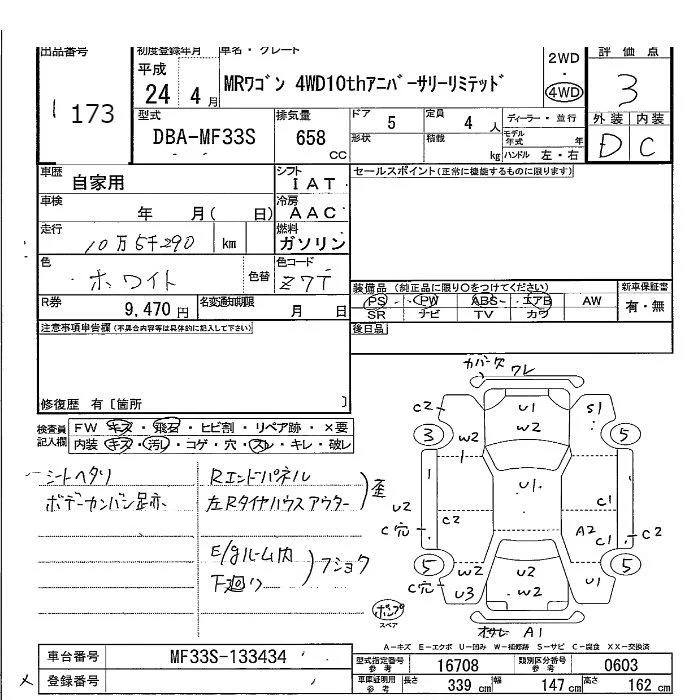 出品番号
1173
初度登録年月
平成
24 4 月
車名・グレード
MRワゴン 4WD10thアニバーサリーリミテッド
2WD
・
4WD
評価点
3
外装 内装
D C
型式
DBA-MF33S
排気量
658
CC
ドア
5
定員
4 人
形状
積載
kg
ディーラー・並行
モデル年式 年
ハンドル 左・右
車歴
自家用
シフト
IAT
車検
年 月( 日)
冷房
AAC
走行
10万5千290 km
燃料
ガソリン
色
ホワイト
色替
色コード
Z7T
R券
9,470 円
名変通知期限
月 日
セールスポイント(正常に機能するものに限ります)
装備品 (純正品に限り○をつけてください)
PS PW ABS エアB AW
SR ナビ TV カワ
新車保証書
有・無
後日品
注意事項申告欄(不具合内容等は具体的に記入して下さい)
修復歴 有 [箇所 ]
検査員記入欄
FW キズ・飛石・ヒビ割・リペア跡・×要
内装 キズ・汚レ・コゲ・穴・スレ・キレ・破レ
シートヘタリ
ボデーカンバン足赤
Rエンドパネル
左Rタイヤハウスアウター
歪
E/gルーム内
下廻り
フショク
カバー欠
ワレ
C2
U1
S1
3
W2
W2
5
1
U1
1
U2
C1
C穴
C2
A2
C1
C2
5
W2
U2
5
C穴
U3
W2
U1
ポンプ
スペア
オサレ A1
A-キズ E-エクボ U-凹み W-補修跡 S-サビ C-腐食 XX-交換済
車台番号
MF33S-133434
登録番号
型式指定番号
参考
16708
類別区分番号
参考
0603
車庫証明用
参考
長さ 339 cm
幅 147 cm
高さ 162 cm